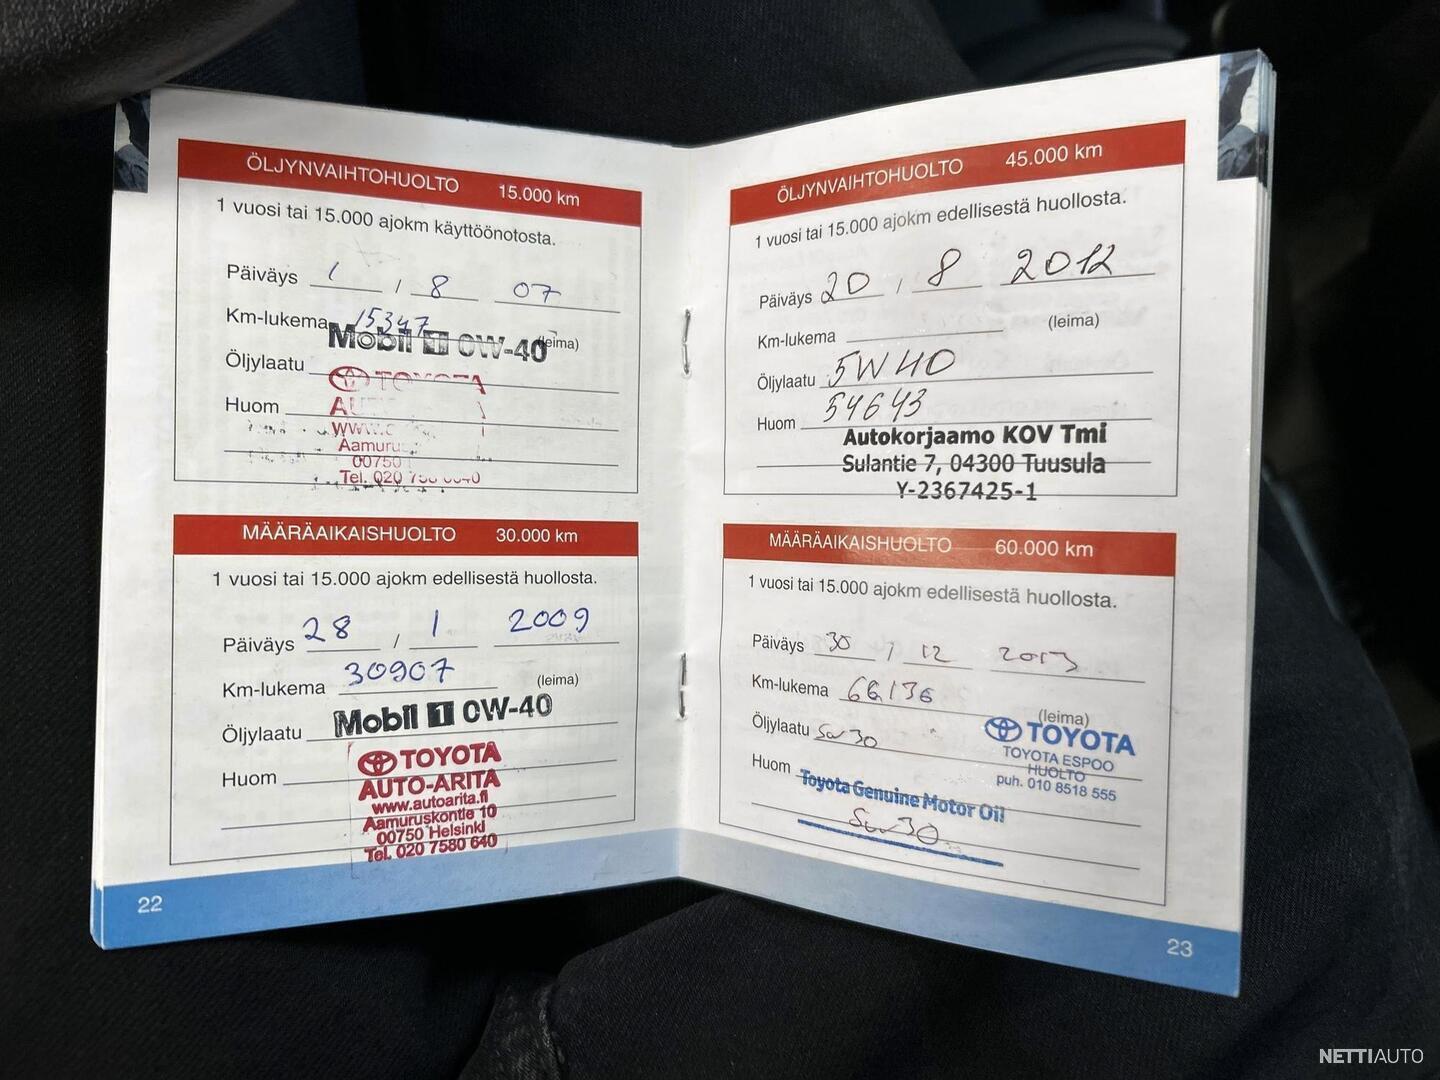 ÖLJYNVAIHTOHUOLTO 15.000 km
1 vuosi tai 15.000 ajokm käyttöönotosta.
Päiväys 1 / 8 07
Km-lukema 15347 (leima)
Mobil 1 0W-40
Öljylaatu
TOYOTA
Huom
Aamuru
00750
Tel. 020
MÄÄRÄAIKAISHUOLTO 30.000 km
1 vuosi tai 15.000 ajokm edellisestä huollosta.
Päiväys 28 / 1 2009
Km-lukema 30907 (leima)
Öljylaatu Mobil 1 0W-40
Huom
TOYOTA
AUTO-ARITA
www.autoarita.fi
Aamuruskontie 10
00750 Helsinki
Tel. 020 7580 640
22
ÖLJYNVAIHTOHUOLTO 45.000 km
1 vuosi tai 15.000 ajokm edellisestä huollosta.
Päiväys 20 / 8 2012
Km-lukema (leima)
Öljylaatu 5W40
Huom 54643
Autokorjaamo KOV Tmi
Sulantie 7, 04300 Tuusula
Y-2367425-1
MÄÄRÄAIKAISHUOLTO 60.000 km
1 vuosi tai 15.000 ajokm edellisestä huollosta.
Päiväys 30 / 12 2013
Km-lukema 66136 (leima)
Öljylaatu 5w30
Huom
TOYOTA
TOYOTA ESPOO
HUOLTO
puh. 010 8518 555
Toyota Genuine Motor Oil
5w30
23
NETTIAUTO